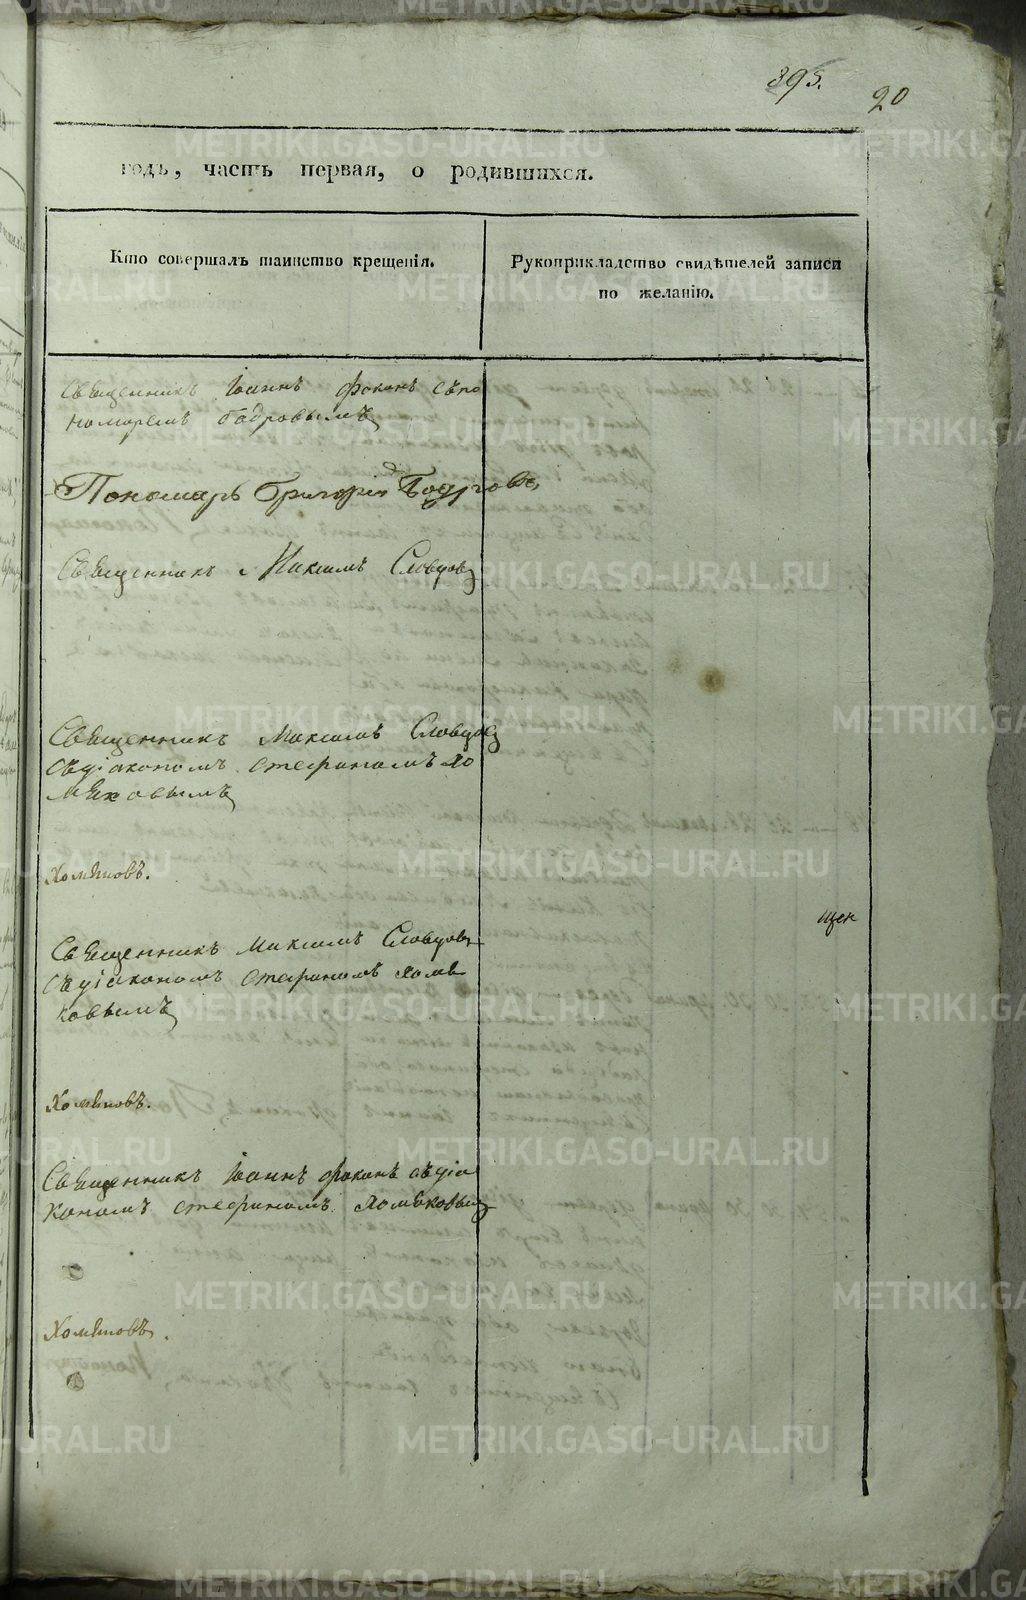 395.
20
годъ, часть первая, о родившихся.
Кто совершалъ таинство крещенія.
Рукоприкладство свидѣтелей записи
по желанію.
Священникъ Іоаннъ Фокинъ съ по
номаремъ Бодровымъ
Пономарь Григорій
Священникъ Максимъ Словцовъ
Священникъ Максимъ Словцовъ
съ діакономъ Стефаномъ Хо
мѣковымъ
Хомяковъ.
щен
Священникъ Максимъ Словцовъ
съ діакономъ Стефаномъ Хомѣ
ковымъ
Хомяковъ.
Священникъ Іоаннъ Фокинъ съ діа
кономъ Стефаномъ Хомѣковымъ
Хомяковъ.
METRIKI.GASO-URAL.RU